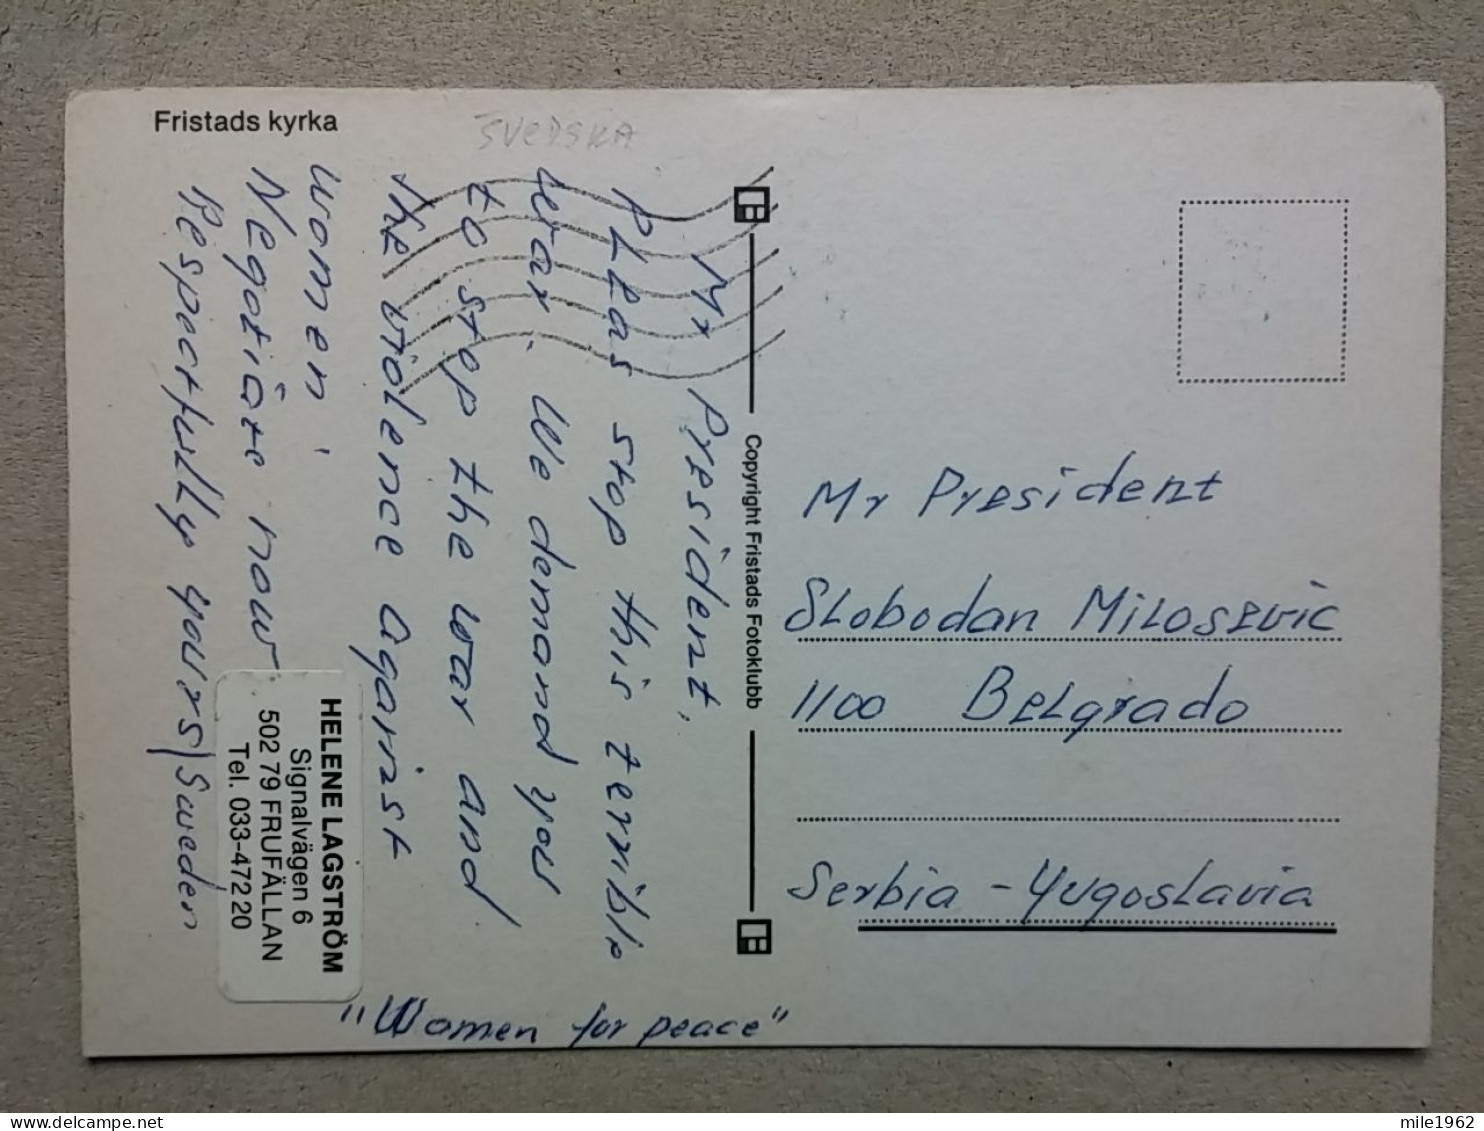 Fristads kyrka
SVEDSKA
Mr President,
PLeas stop this terrible
War. We demand you
to stop the war and
the violence aganist
women!
Negotiate now
Respectfully yours/Sweden
HELENE LAGSTRÖM
Signalvägen 6
502 79 FRUFÄLLAN
Tel. 033-472 20
"Women for peace"
Copyright Fristads Fotoklubb
Mr President
Slobodan Milosevic
1100 Belgrado
Serbia - Yugoslavia
mile1962